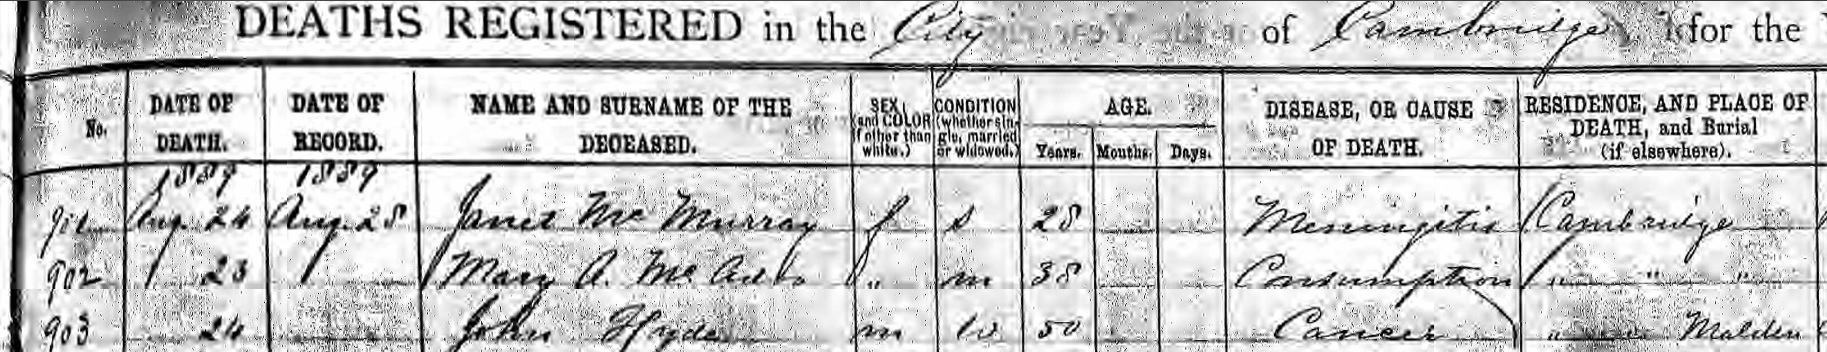 DEATHS REGISTERED in the City of Cambridge for the
No. DATE OF DEATH. DATE OF RECORD. NAME AND SURNAME OF THE DECEASED. SEX (and COLOR if other than white.) CONDITION (whether sin- gle, married or widowed.) AGE. Years. Months. Days. DISEASE, OR CAUSE OF DEATH. RESIDENCE, AND PLACE OF DEATH, and Burial (if elsewhere).
1889 1889
901 Aug. 24 Aug. 28 Janet Mc Murray f s 28 Meningitis Cambridge
902 23 Mary A. Mc " m 38 Consumption " " "
903 24 John Hyde m w 50 Cancer " Malden